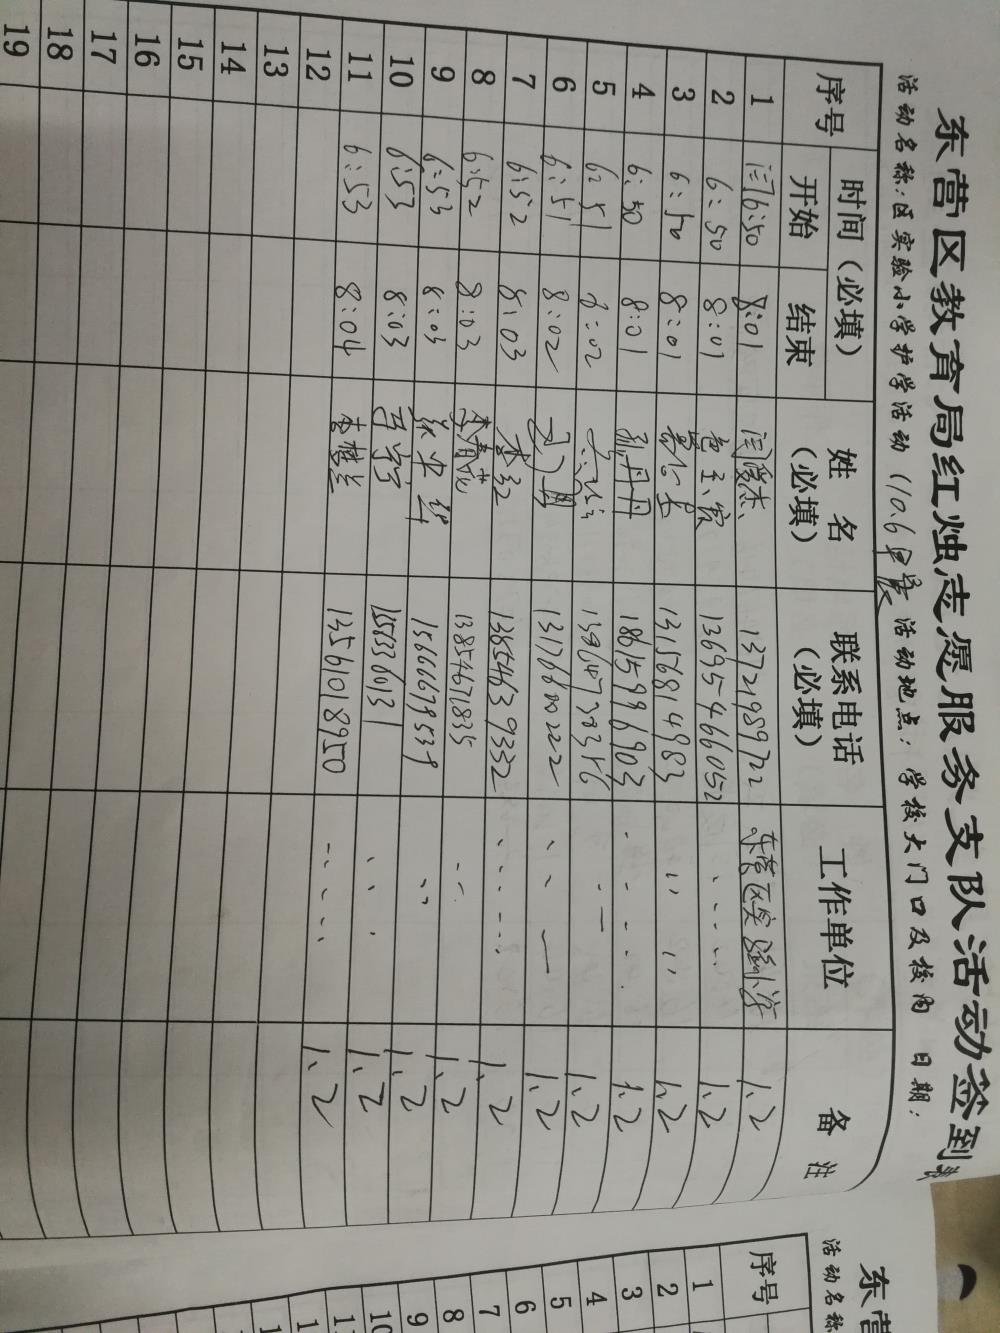 东营区教育局红烛志愿服务支队活动签到表
活动名称：区实验小学护学活动（10.6 活动地点：学校大门口及校内 日期：
序号 时间（必填） 姓名（必填） 联系电话（必填） 工作单位 备注
开始 结束
1 闫 6:50 8:01 闫俊杰 13721989722 东营区实验小学 1、2
2 6:50 8:01 13695466052 1、2
3 6:50 8:01 13156814983 1、2
4 6:50 8:01 孙丹丹 18615996903 1、2
5 6:51 8:02 1、2
6 6:51 8:02 13176600222 1、2
7 6:52 8:03 13854639332 1、2
8 6:52 8:03 李春花 13854671835 1、2
9 6:53 8:03 15666679539 1、2
10 6:53 8:03 15563360131 1、2
11 6:53 8:04 李楚兰 13561018950 1、2
12
13
14
15
16
17
18
19
东营
活动名称
序号
1
2
3
4
5
6
7
8
9
10